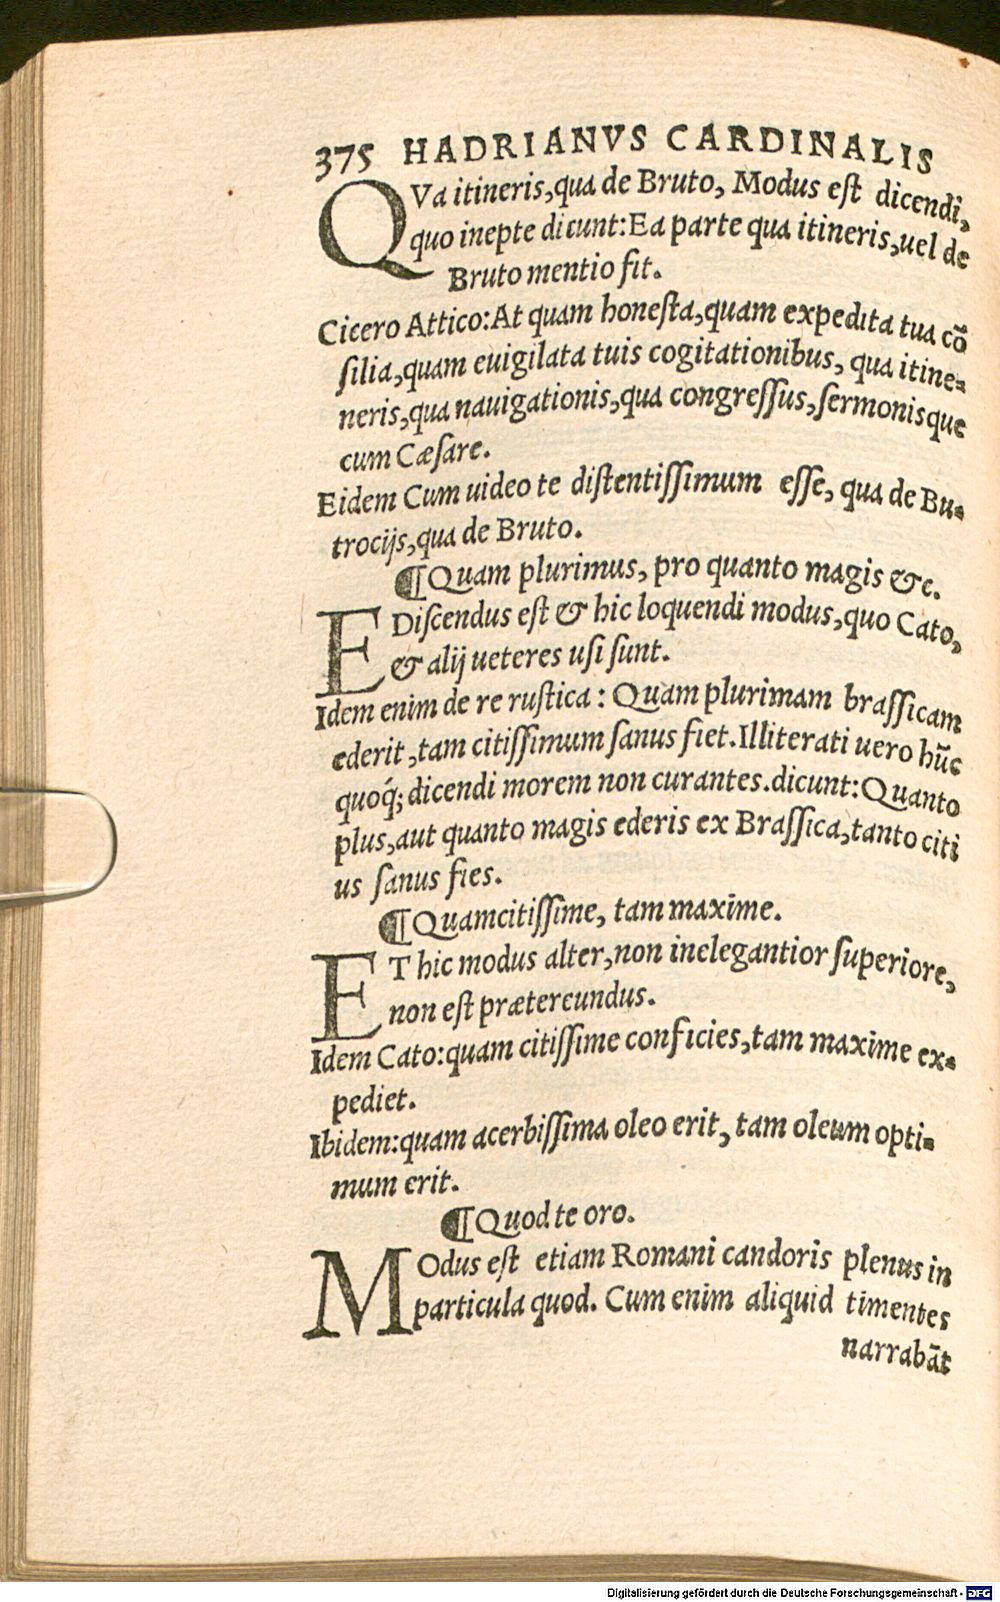 375 HADRIANVS CARDINALIS
QVa itineris,qua de Bruto, Modus est dicendi,
quo inepte dicunt:Ea parte qua itineris,uel de
Bruto mentio fit.
Cicero Attico:At quam honesta,quam expedita tua cō
silia,quam euigilata tuis cogitationibus, qua itine-
neris,qua nauigationis,qua congressus,sermonisque
cum Cæsare.
Eidem Cum uideo te distentissimum esse, qua de Bu-
trocijs,qua de Bruto.
¶Quam plurimus, pro quanto magis &c.
EDiscendus est & hic loquendi modus,quo Cato,
& alij ueteres usi sunt.
Idem enim de re rustica: Quam plurimam brassicam
ederit,tam citissimum sanus fiet.Illiterati uero hūc
quoq́; dicendi morem non curantes.dicunt:Quanto
plus,aut quanto magis ederis ex Brassica,tanto citi
us sanus fies.
¶Quamcitissime, tam maxime.
ET hic modus alter,non inelegantior superiore,
non est prætereundus.
Idem Cato:quam citissime conficies,tam maxime ex-
pediet.
Ibidem:quam acerbissima oleo erit, tam oleum opti-
mum erit.
¶Quod te oro.
MOdus est etiam Romani candoris plenus in
particula quod. Cum enim aliquid timentes
narrabāt
Digitalisierung gefördert durch die Deutsche Forschungsgemeinschaft - DFG